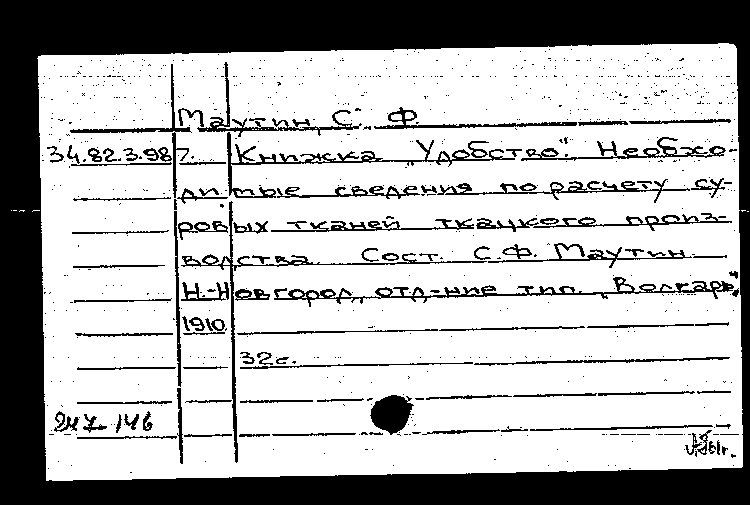 Маутин, С. Ф.
34.82.3.987. Книжка „Удобство". Необхо-
димые сведения по расчету су-
ровых тканей ткацкого произ-
водства. Сост. С.Ф. Маутин.
Н.-Новгород, отд-ние тип. „Волгарь",
1910
32с.
146